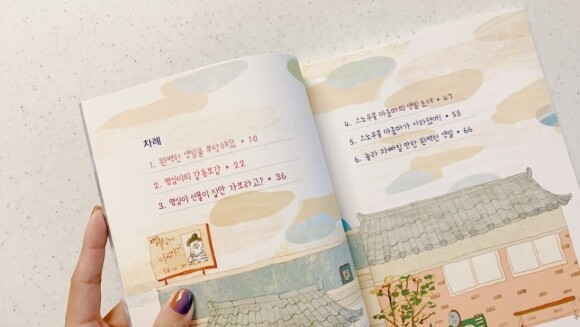 차례
1. 완벽한 생일을 부탁해요 • 10
2. 명심이의 감동보감 • 22
3. 명심이 선물이 집만 가보라고? • 36
4. 스노우볼 마을마의 생일 초대 • 47
5. 스노우볼 마을마가 사라졌어! • 55
6. 놀라 자빠질 만한 완벽한 생일 • 66